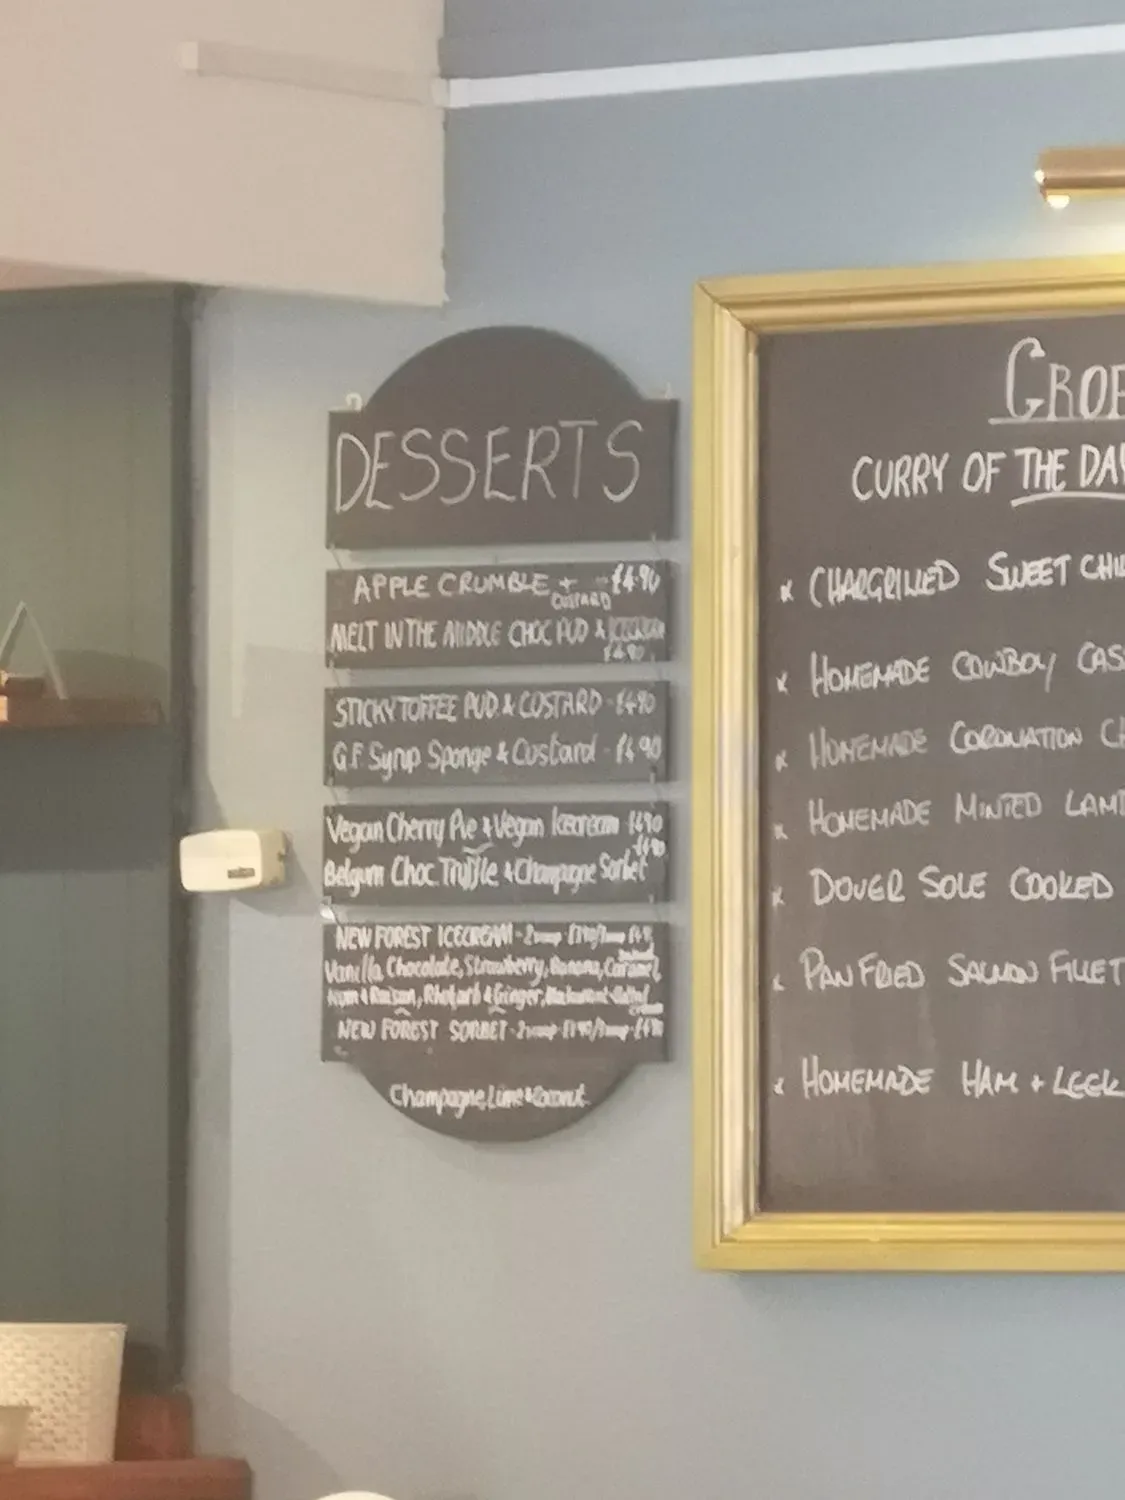 DESSERTS
APPLE CRUMBLE + CUSTARD £4.90
MELT IN THE MIDDLE CHOC PUD & ICECREAM
£4.90
STICKY TOFFEE PUD & CUSTARD - £4.90
G.F Syrup Sponge & Custard - £4.90
Vegan Cherry Pie & Vegan Icecream £4.90
Belgium Choc. Truffle & Champagne Sorbet £4.90
NEW FOREST ICECREAM - 2
Vanilla, Chocolate, Strawberry, Banana, Caramel,
Rum & Raisin, Rhubarb & Ginger,
NEW FOREST SORBET - 2
Champagne, Lime & Coconut.
CURRY OF THE DAY
* CHARGRILLED SWEET
* HOMEMADE COWBOY
* HOMEMADE CORONATION
* HOMEMADE MINTED LAMB
* DOVER SOLE COOKED
* PAN FRIED SALMON FILLET
* HOMEMADE HAM + LEEK